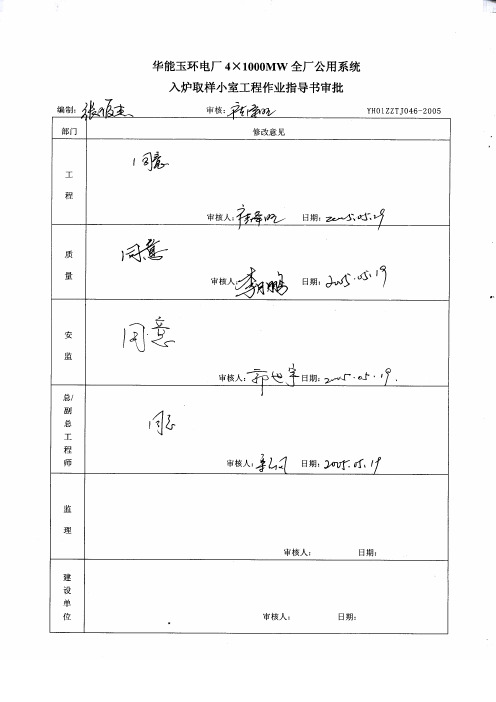 华能玉环电厂 4×1000MW 全厂公用系统
入炉取样小室工程作业指导书审批
编制: 审核: YH01ZZTJ046-2005
部门 修改意见
工程
同意
审核人: 日期: 2005.05.19
质量
同意
审核人: 李鹏 日期: 2005.05.19
安监
同意
审核人: 日期: 2005.05.19.
总/副总工程师
同意
审核人: 日期: 2005.05.19
监理
审核人: 日期:
建设单位
审核人: 日期: